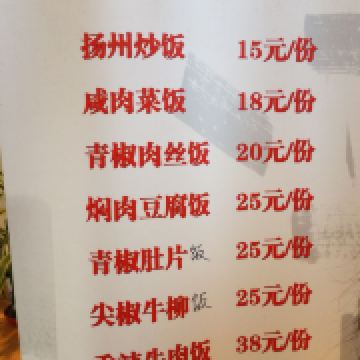 扬州炒饭 15元/份
咸肉菜饭 18元/份
青椒肉丝饭 20元/份
焖肉豆腐饭 25元/份
青椒肚片饭 25元/份
尖椒牛柳饭 25元/份
牛肉饭 38元/份